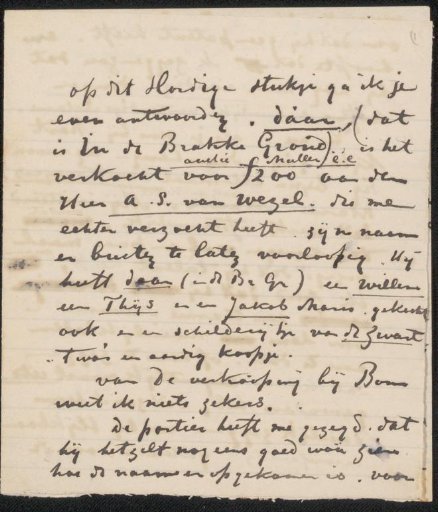 op dit Hoedige stukje ga ik je
even antwoorden. daar, (dat
is In de Brakke Grond) is het
auctie Muller e.c
verkocht voor ƒ200 aan den
Heer A. S. van Wezel. die me
echter verzocht heeft zijn naam
er buiten te laten voorloopig. Hij
heeft daar (in de Br Gr) een Willem
een Thijs en een Jakob Maris gekocht
ook en een schilderijtje van de Zwart
't was een aardig koopje.
van De verkooping bij Bom
weet ik niets zekers.
De portier heeft me gezegd dat
hij het zelf nog eens goed wou zien
hoe de naam er op gekomen is. voor